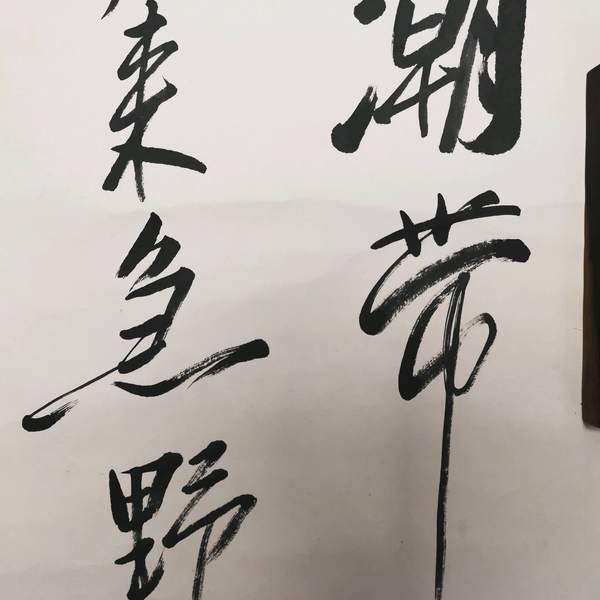 潮带
来急野